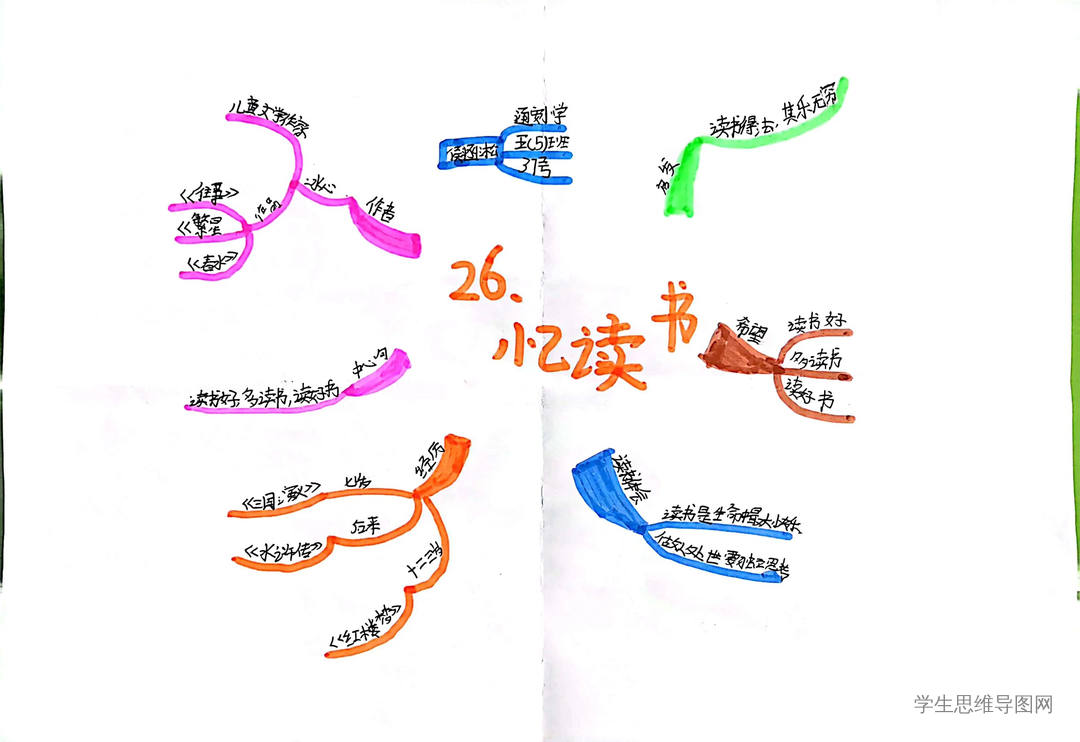 26.
忆读书
作者
冰心
儿童文学作家
作品
《往事》
《繁星
《春水》
五(5)班
37号
读书得法,其乐无穷
希望
读书好
多读书
读好书
中心句
读书好,多读书,读好书
经历
七岁
《三国演义》
后来
《水浒传》
十二三岁
《红楼梦》
读书体会
读书是生命中最大快乐
学生思维导图网